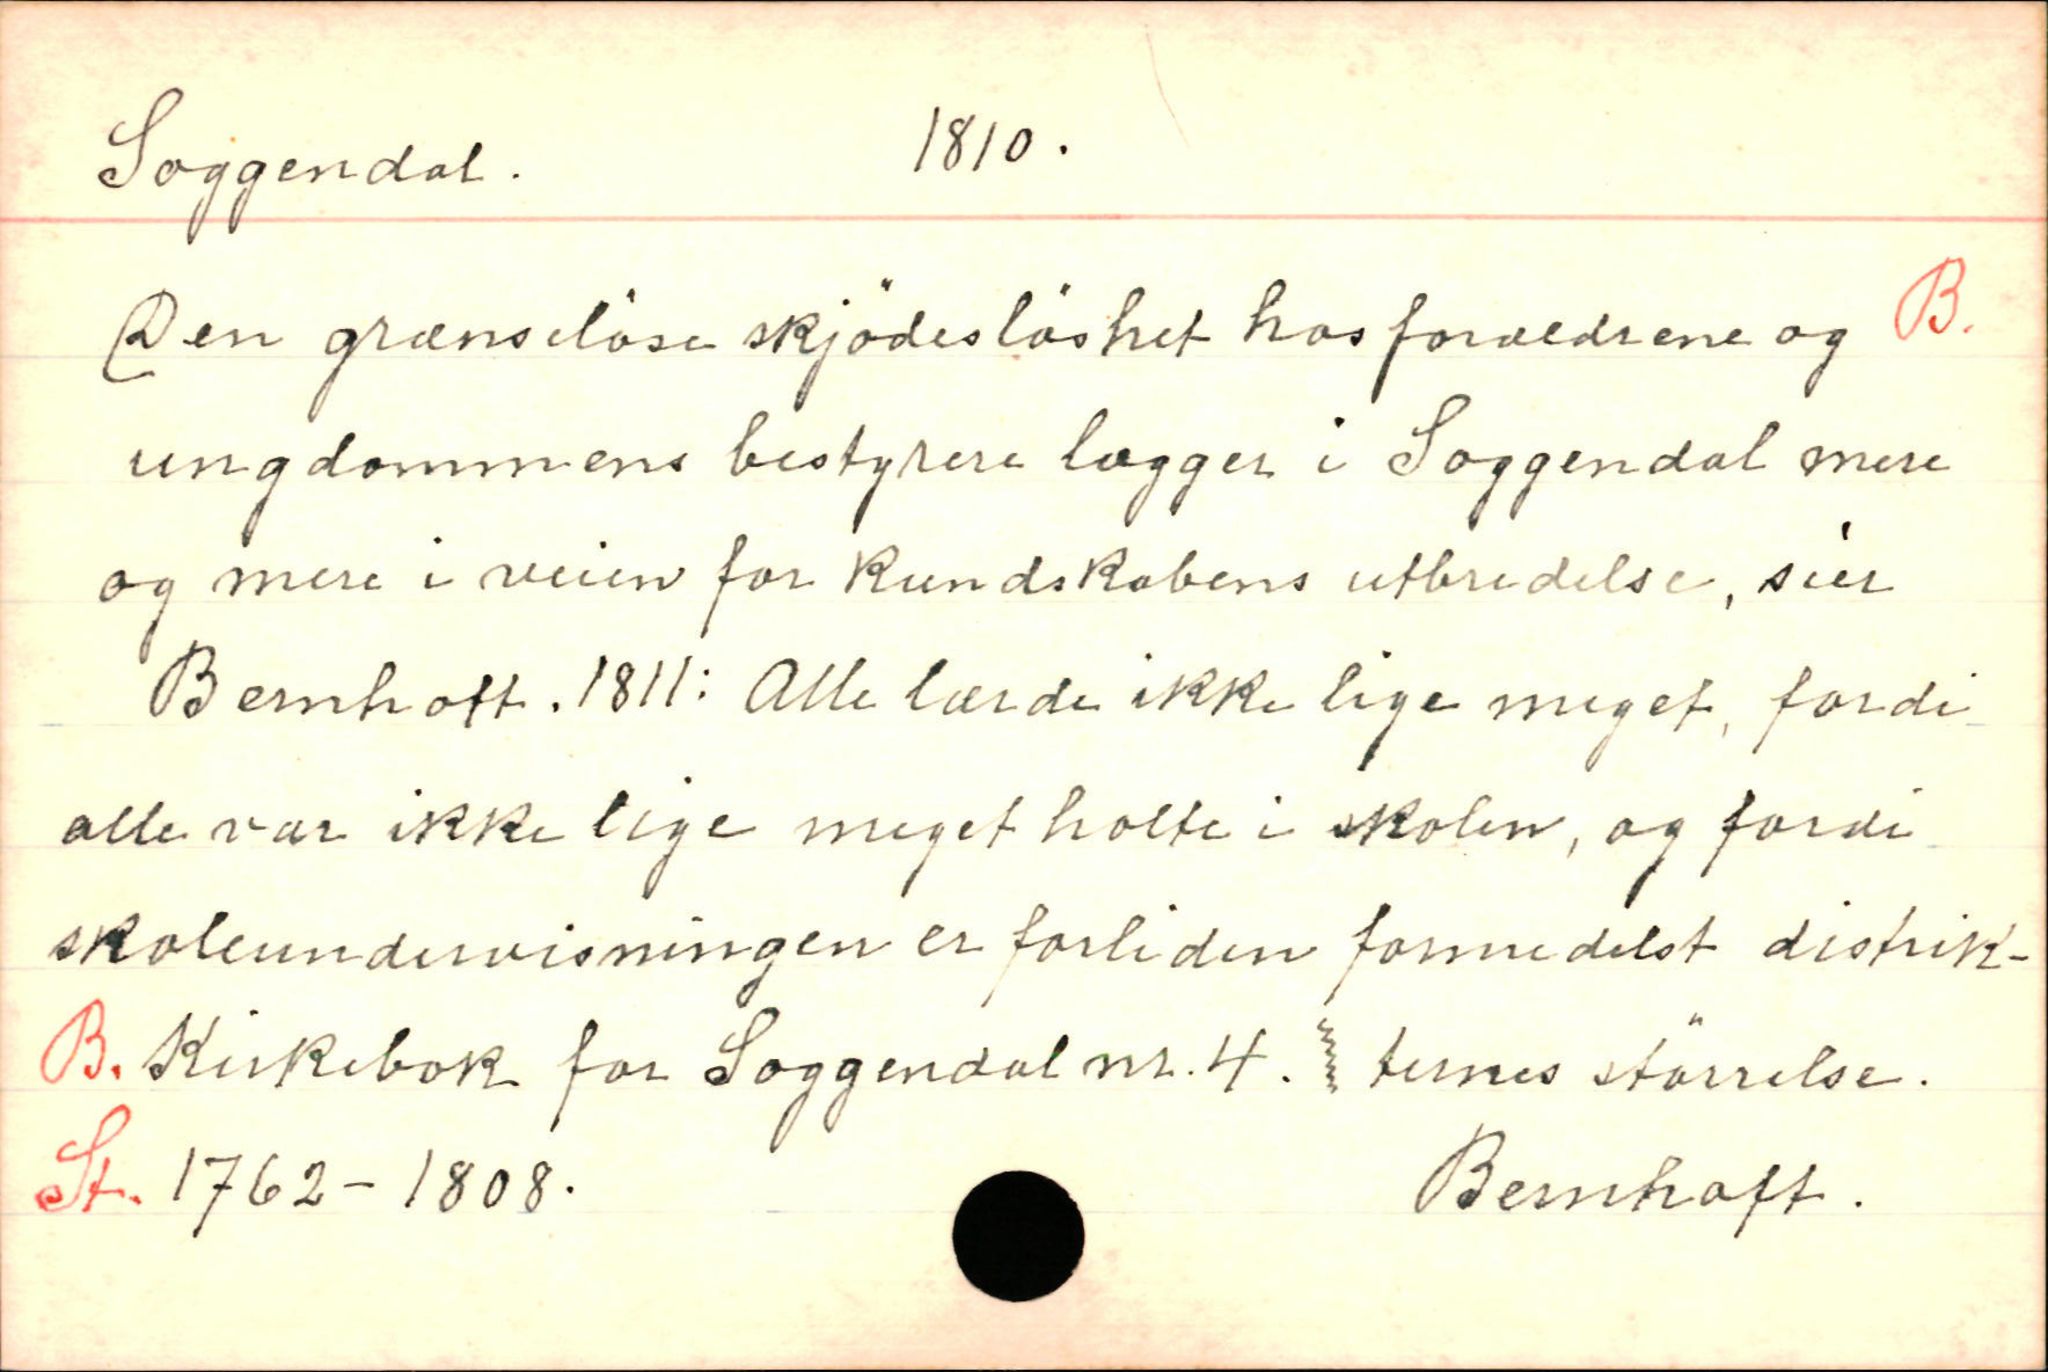 Soggendal. 1810.
Den grænselöse skjödeslöshet hos forældrene og B.
ungdommens bestyrere lægger i Soggendal mere
og mere i veien for kundskabens utbredelse, sier
Bernhoft. 1811: Alle lærde ikke lige meget, fordi
alle var ikke lige meget holte i skolen, og fordi
skoleundervisningen er forliden formedelst distrik-
B. Kirkebok for Soggendal nr. 4. ternes större​lse.
St. 1762-1808. Bernhoft.